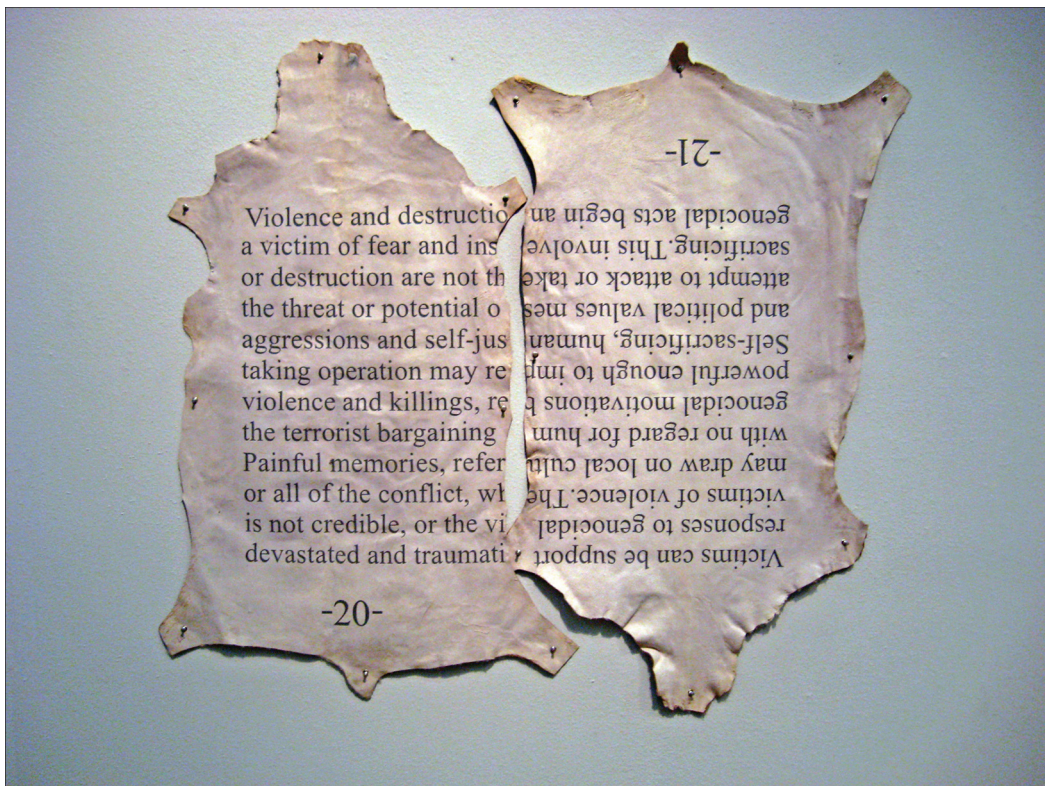 Violence and destructio
a victim of fear and ins
or destruction are not th
the threat or potential o
aggressions and self-jus
taking operation may re
violence and killings, re
the terrorist bargaining
Painful memories, refer
or all of the conflict, wh
is not credible, or the vi
devastated and traumati
-20-
Victims can be support
responses to genocidal
victims of violence. The
may draw on local cultu
with no regard for hum
genocidal motivations b
powerful enough to imp
Self-sacrificing, human
and political values mes
attempt to attack or take
sacrificing. This involve
genocidal acts begin an
-21-